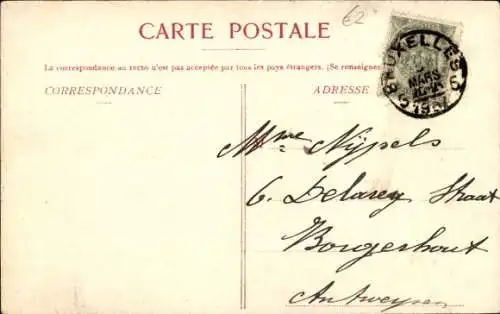 62
CARTE POSTALE
La correspondance au recto n'est pas acceptée par tous les pays étrangers. (Se renseigner
CORRESPONDANCE
ADRESSE
BRUXELLES 5
MARS
Mme Nÿpels
6. Delarey Straat
Borgerhout
Antwerpen